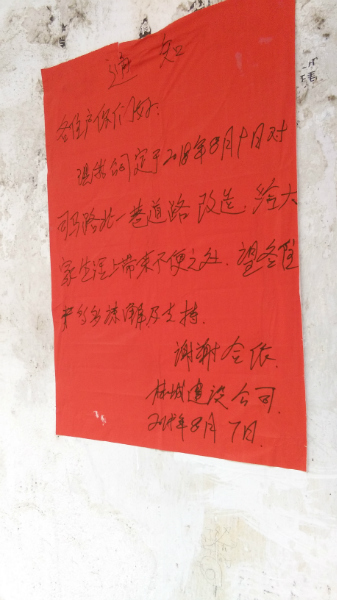 通知
各住户你们好.
我公司定于2018年8月9日对
司马路北一巷道路改造.给大
家生活上带来不便之处.望各住
户多多谅解及支持.
谢谢合作
林城建设公司.
2018年8月7日.